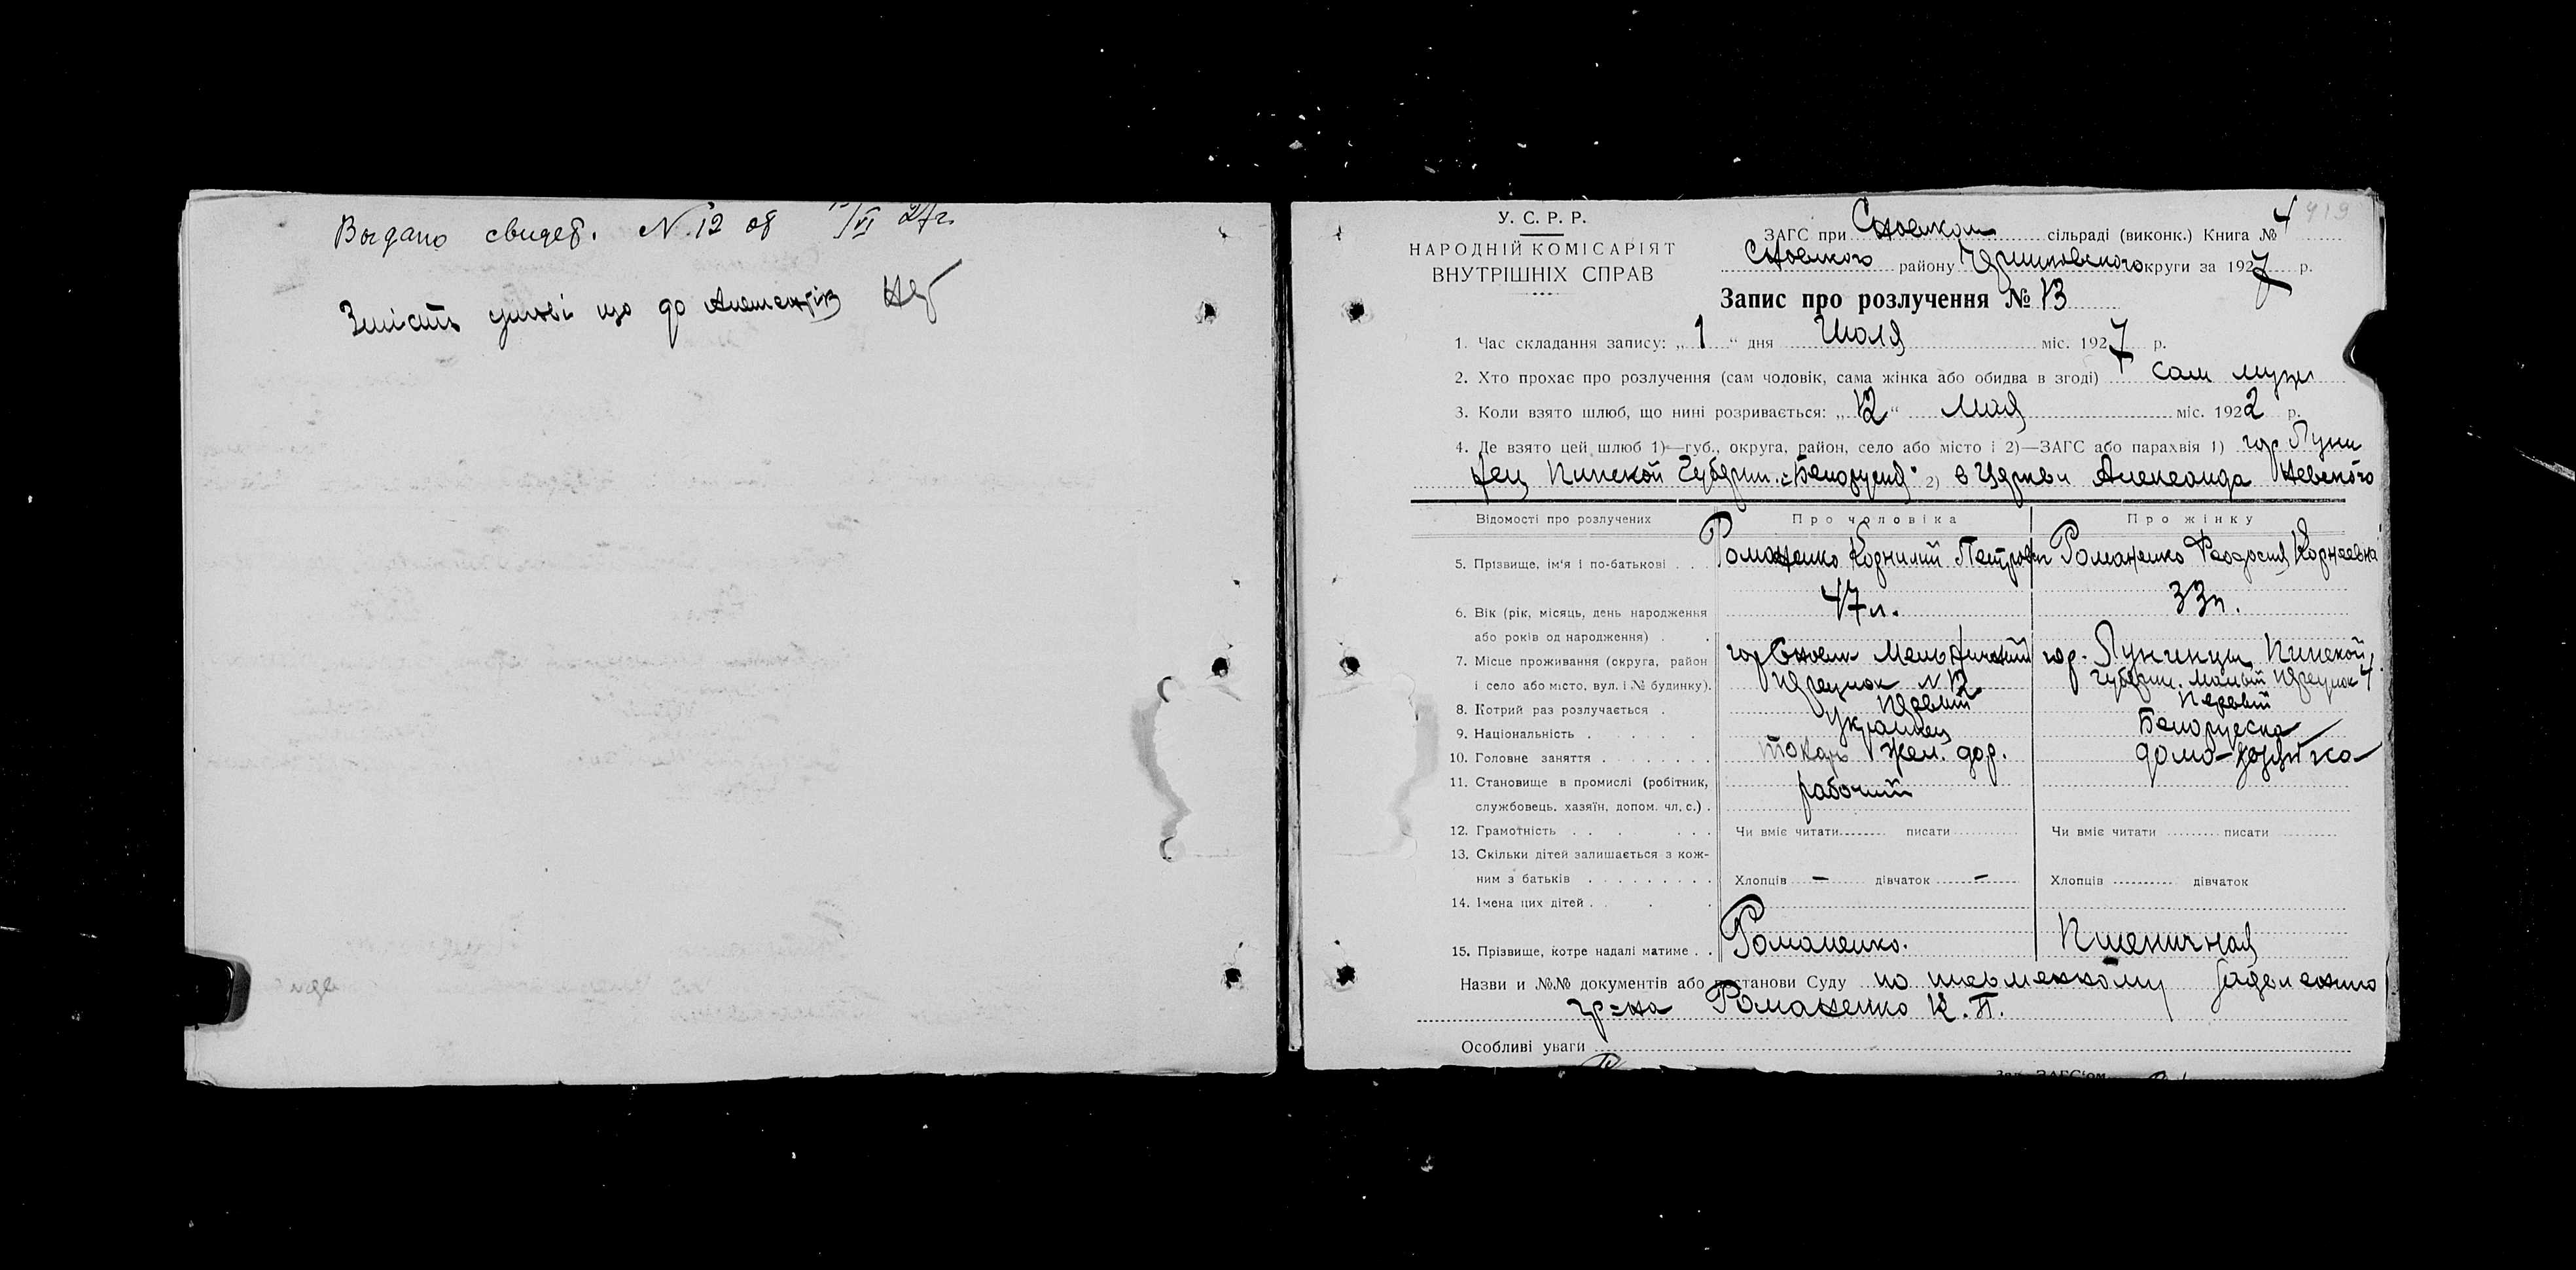 Выдано свидет. N 12 от /VI 27 г.
Зміст умові що до Алементів Нет
У. С. Р. Р.
НАРОДНІЙ КОМІСАРІЯТ
ВНУТРІШНІХ СПРАВ
419
ЗАГС при Сновском сільраді (виконк.) Книга № 4
Сновского району Черниговского округи за 1927 р.
Запис про розлучення № 13
1. Час складання запису: „ 1 “ дня Июля міс. 1927 р.
2. Хто прохає про розлучення (сам чоловік, сама жінка або обидва в згоді) сам муж
3. Коли взято шлюб, що нині розривається: „ 12 “ Мая міс. 1922 р.
4. Де взято цей шлюб 1)—губ., округа, район, село або місто і 2)—ЗАГС або парахвія 1) гор. Луни
нец Пинской Губерни. „Белорусия“ 2) в Церкви Александа Невского
Відомості про розлучених Про чоловіка Про жінку
5. Прізвище, ім'я і по-батькові . . Романенко Корнилий Петрович Романенко Феодосия Корнеевна
6. Вік (рік, місяць, день народження 47 л. 33 л.
або років од народження) . .
7. Місце проживання (округа, район гор Сновск гор. Лунинец Пинской
і село або місто, вул. і № будинку). переулок N 12 Губерни. Малый переулок 4
8. Котрий раз розлучається . Первый Первый
9. Національність . . . . . Украинец Белорусска
10. Головне заняття . . . . . . . токарь жел. дор. домо-хозяйка
11. Становище в промислі (робітник, рабочий
службовець, хазяїн, допом. чл. с.) .
12. Грамотність . . . . . . Чи вміє читати писати Чи вміє читати писати
13. Скільки дітей залишається з кож-
ним з батьків . . . . . . . . . Хлопців — дівчаток — Хлопців дівчаток
14. Імена цих дітей . . . .
15. Прізвище, котре надалі матиме . . Романенко. Пшеничная
Назви и №№ документів або постанови Суду по письменному заявлению
гр-на Романенко К. П.
Особливі уваги
Зав. ЗАГС'ом